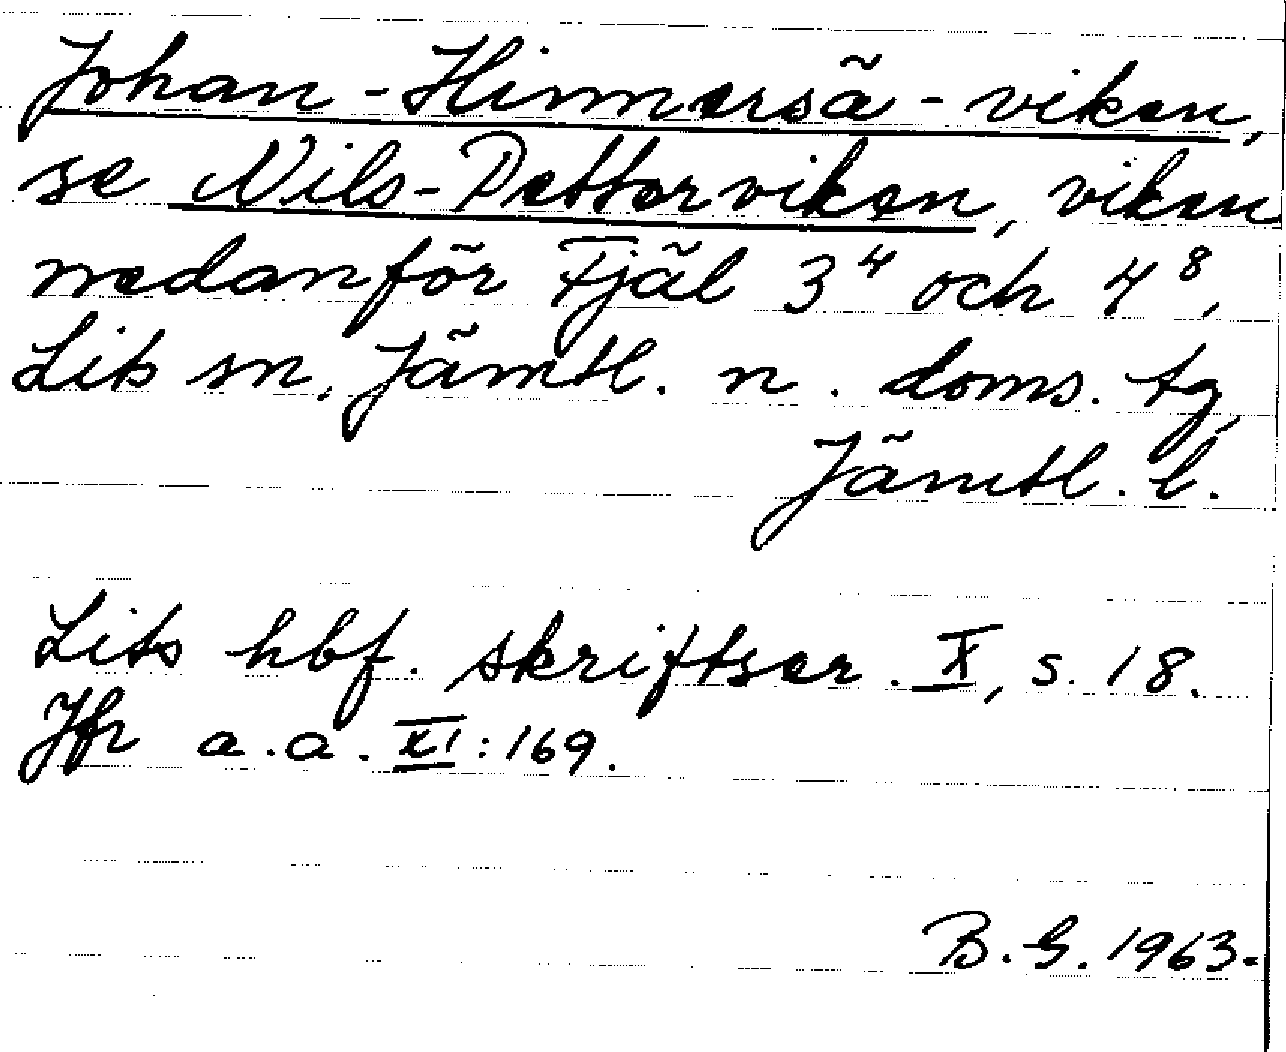 Johan-Hinnersä-viken,
se Nils-Petterviken, viken
nedanför Fjäl 3⁴ och 4⁸,
Lits sn, Jämtl. n. doms. tg,
Jämtl. l.
Lits hbf. skriftser. X, s. 18.
Jfr a.a. XI:169.
B.G. 1963.